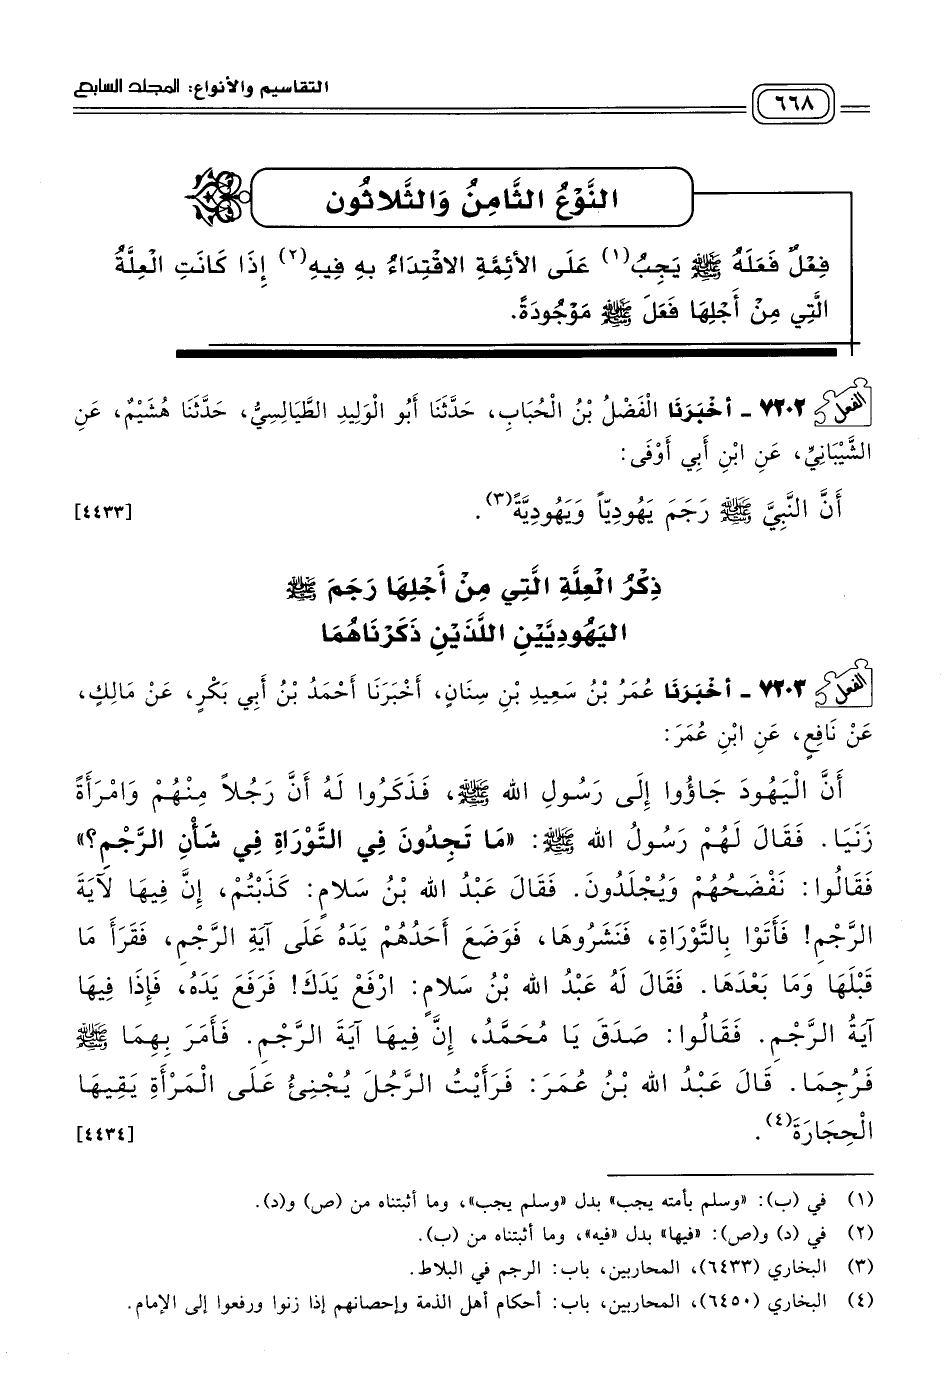 التقاسيم والأنواع: المجلد السابع
٦٦٨
النَّوْعُ الثَّامِنُ وَالثَّلاثُون
فِعْلٌ فَعَلَهُ ﷺ يَجِبُ(١) عَلَى الأَئِمَّةِ الاقْتِدَاءُ بِهِ فِيهِ(٢) إِذَا كَانَتِ الْعِلَّةُ
الَّتِي مِنْ أَجْلِهَا فَعَلَ ﷺ مَوْجُودَةً.
الفعل ٧٢٠٢ - أَخْبَرَنَا الْفَضْلُ بْنُ الْحُبَابِ، حَدَّثَنَا أَبُو الْوَلِيدِ الطَّيَالِسِيُّ، حَدَّثَنَا هُشَيْمٌ، عَنِ
الشَّيْبَانِيِّ، عَنِ ابْنِ أَبِي أَوْفَى:
أَنَّ النَّبِيَّ ﷺ رَجَمَ يَهُودِيّاً وَيَهُودِيَّةً(٣). [٤٤٣٣]
ذِكْرُ الْعِلَّةِ الَّتِي مِنْ أَجْلِهَا رَجَمَ ﷺ
الْيَهُودِيَّيْنِ اللَّذَيْنِ ذَكَرْنَاهُمَا
الفعل ٧٢٠٣ - أَخْبَرَنَا عُمَرُ بْنُ سَعِيدِ بْنِ سِنَانٍ، أَخْبَرَنَا أَحْمَدُ بْنُ أَبِي بَكْرٍ، عَنْ مَالِكٍ،
عَنْ نَافِعٍ، عَنِ ابْنِ عُمَرَ:
أَنَّ الْيَهُودَ جَاؤُوا إِلَى رَسُولِ الله ﷺ، فَذَكَرُوا لَهُ أَنَّ رَجُلاً مِنْهُمْ وَامْرَأَةً
زَنَيَا. فَقَالَ لَهُمْ رَسُولُ الله ﷺ: «مَا تَجِدُونَ فِي التَّوْرَاةِ فِي شَأْنِ الرَّجْمِ؟»
فَقَالُوا: نَفْضَحُهُمْ وَيُجْلَدُونَ. فَقَالَ عَبْدُ الله بْنُ سَلَامٍ: كَذَبْتُمْ، إِنَّ فِيهَا لَآيَةَ
الرَّجْمِ! فَأَتَوْا بِالتَّوْرَاةِ، فَنَشَرُوهَا، فَوَضَعَ أَحَدُهُمْ يَدَهُ عَلَى آيَةِ الرَّجْمِ، فَقَرَأَ مَا
قَبْلَهَا وَمَا بَعْدَهَا. فَقَالَ لَهُ عَبْدُ الله بْنُ سَلَامٍ: ارْفَعْ يَدَكَ! فَرَفَعَ يَدَهُ، فَإِذَا فِيهَا
آيَةُ الرَّجْمِ. فَقَالُوا: صَدَقَ يَا مُحَمَّدُ، إِنَّ فِيهَا آيَةَ الرَّجْمِ. فَأَمَرَ بِهِمَا ﷺ
فَرُجِمَا. قَالَ عَبْدُ الله بْنُ عُمَرَ: فَرَأَيْتُ الرَّجُلَ يُجْنِئُ عَلَى الْمَرْأَةِ يَقِيهَا
الْحِجَارَةَ(٤). [٤٤٣٤]
(١) في (ب): «وسلم بأمته يجب» بدل «وسلم يجب»، وما أثبتناه من (ص) و(د).
(٢) في (د) و(ص): «فيها» بدل «فيه»، وما أثبتناه من (ب).
(٣) البخاري (٦٤٣٣)، المحاربين، باب: الرجم في البلاط.
(٤) البخاري (٦٤٥٠)، المحاربين، باب: أحكام أهل الذمة وإحصانهم إذا زنوا ورفعوا إلى الإمام.